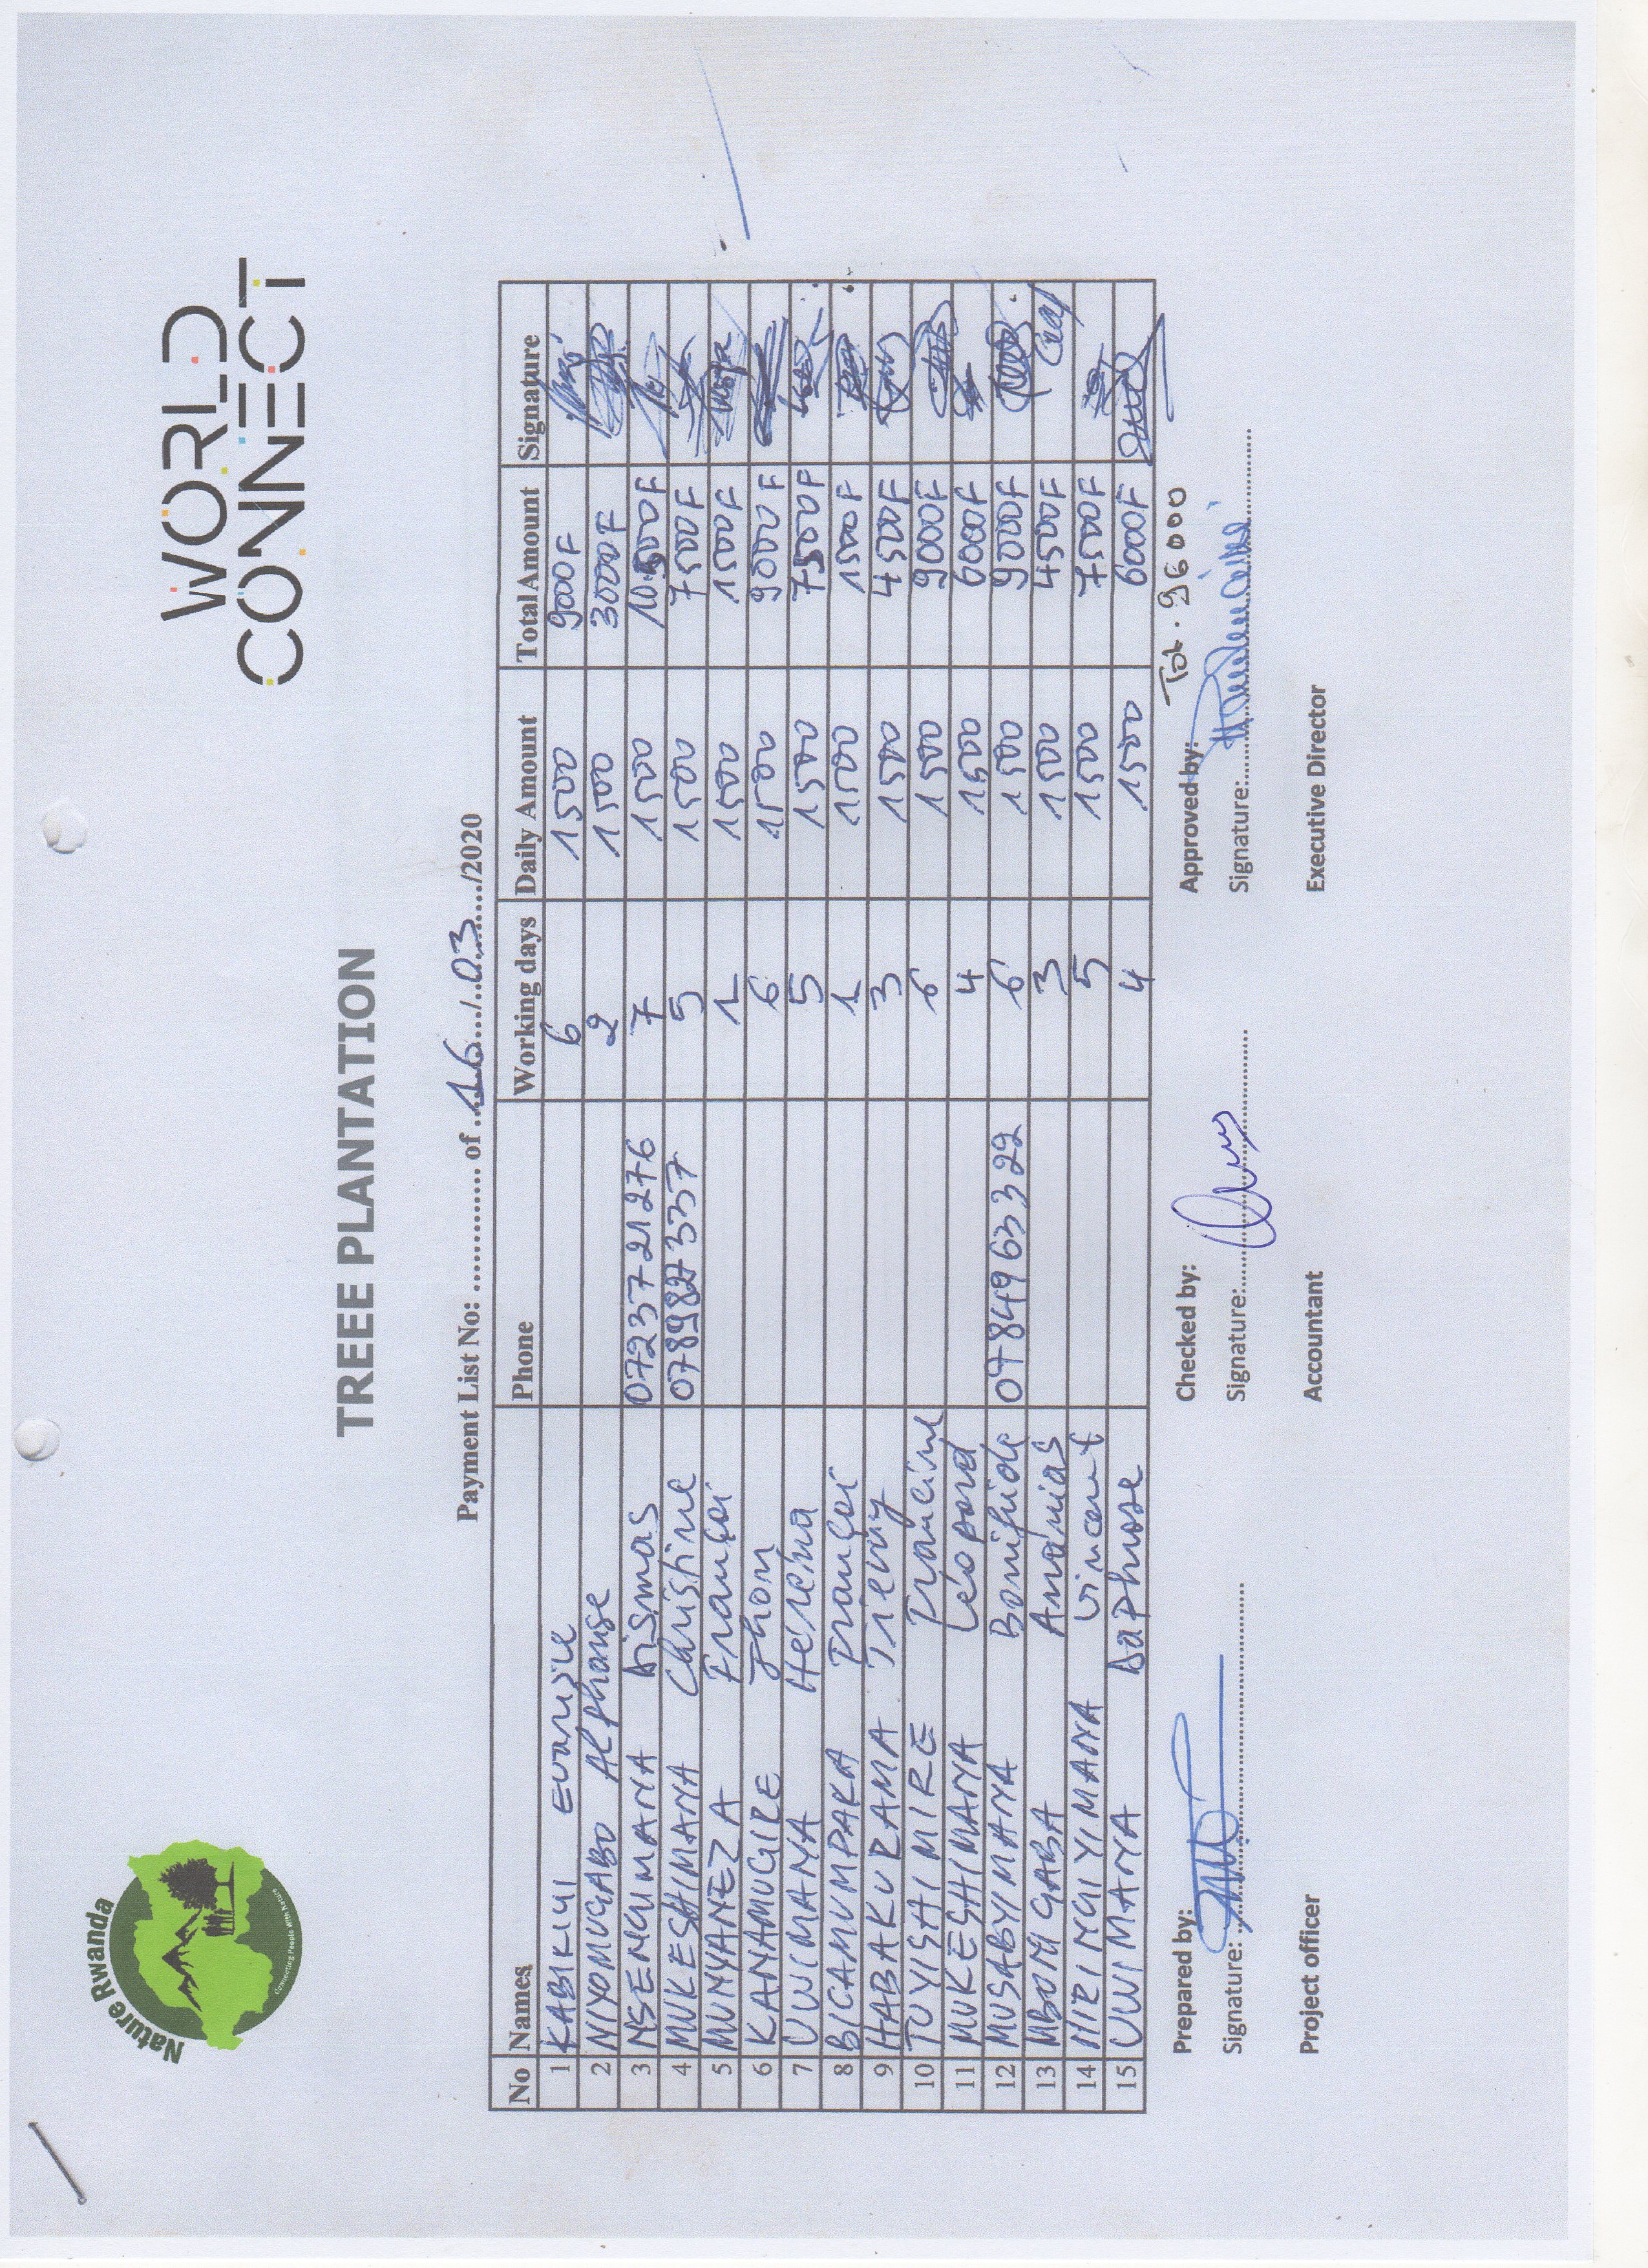 Nature Rwanda
Connecting People With Nature
WORLD
CONNECT
TREEE PLANTATION
Payment List No: .............. of ..16../..03../2020
No Names Phone Working days Daily Amount Total Amount Signature
1 KABIKUI Evariste 6 1500 9000F
2 NIYOMUGABO Alphonse 2 1500 3000F
3 NSENGUMANA Dismas 0723721276 7 1500 10.500F
4 MUKESHIMANA Christine 0789827337 5 1500 7500F
5 MUNYANEZA Françoi 1 1500 1500F
6 KANAMUGIRE Jhon 6 1500 9000F
7 UWIMANA Helena 5 1500 7500F
8 BICAMUMPAKA Françoi 1 1500 1500F
9 HABAKURAMA Trieny 3 1500 4500F
10 TUYISHIMIRE Francine 6 1500 9000F
11 MUKESHIMANA Léopord 4 1500 6000F
12 MUSABYIMANA Bonifride 0784963322 6 1500 9000F
13 MBONIGABA Ananias 3 1500 4500F
14 NIRINGIYIMANA Vincent 5 1500 7500F
15 UWIMANA Daphrose 4 1500 6000F
Tot. 96000
Prepared by: Checked by: Approved by:
Signature: Signature: Signature:
Project officer Accountant Executive Director